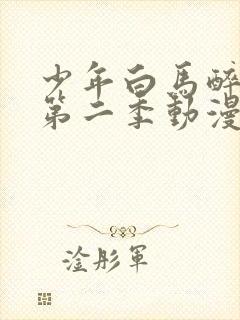 少年白馬醉
第二季動漫
淦彤軍